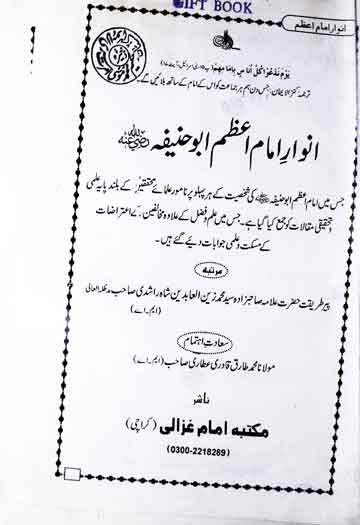 GIFT BOOK
انوار امام اعظم
یَوْمَ نَدْعُوْا کُلَّ اُنَاسٍ بِاِمَامِهِمْ
ترجمہ کنز الایمان: جس دن ہم ہر جماعت کو اس کے امام کے ساتھ بلائیں گے۔
انوارِ امام اعظم ابو حنیفہ رضی اللہ عنہ
جس میں امام اعظم ابو حنیفہ کی شخصیت کے ہر پہلو پر نامور علمائے محققین کے بلند پایہ علمی
و تحقیقی مقالات کو جمع کیا گیا ہے۔ جس میں علم و فضل کے علاوہ مخالفین کے اعتراضات
کے مسکت و علمی جوابات دیئے گئے ہیں۔
مرتبہ
پیر طریقت حضرت علامہ صاحبزادہ سید محمد زین العابدین شاہ راشدی صاحب مدظلہ العالی
(ایم۔اے)
سعادت اہتمام
مولانا محمد طارق قادری عطاری صاحب (ایم۔اے)
ناشر
مکتبہ امام غزالی (کراچی)
(0300-2218289)